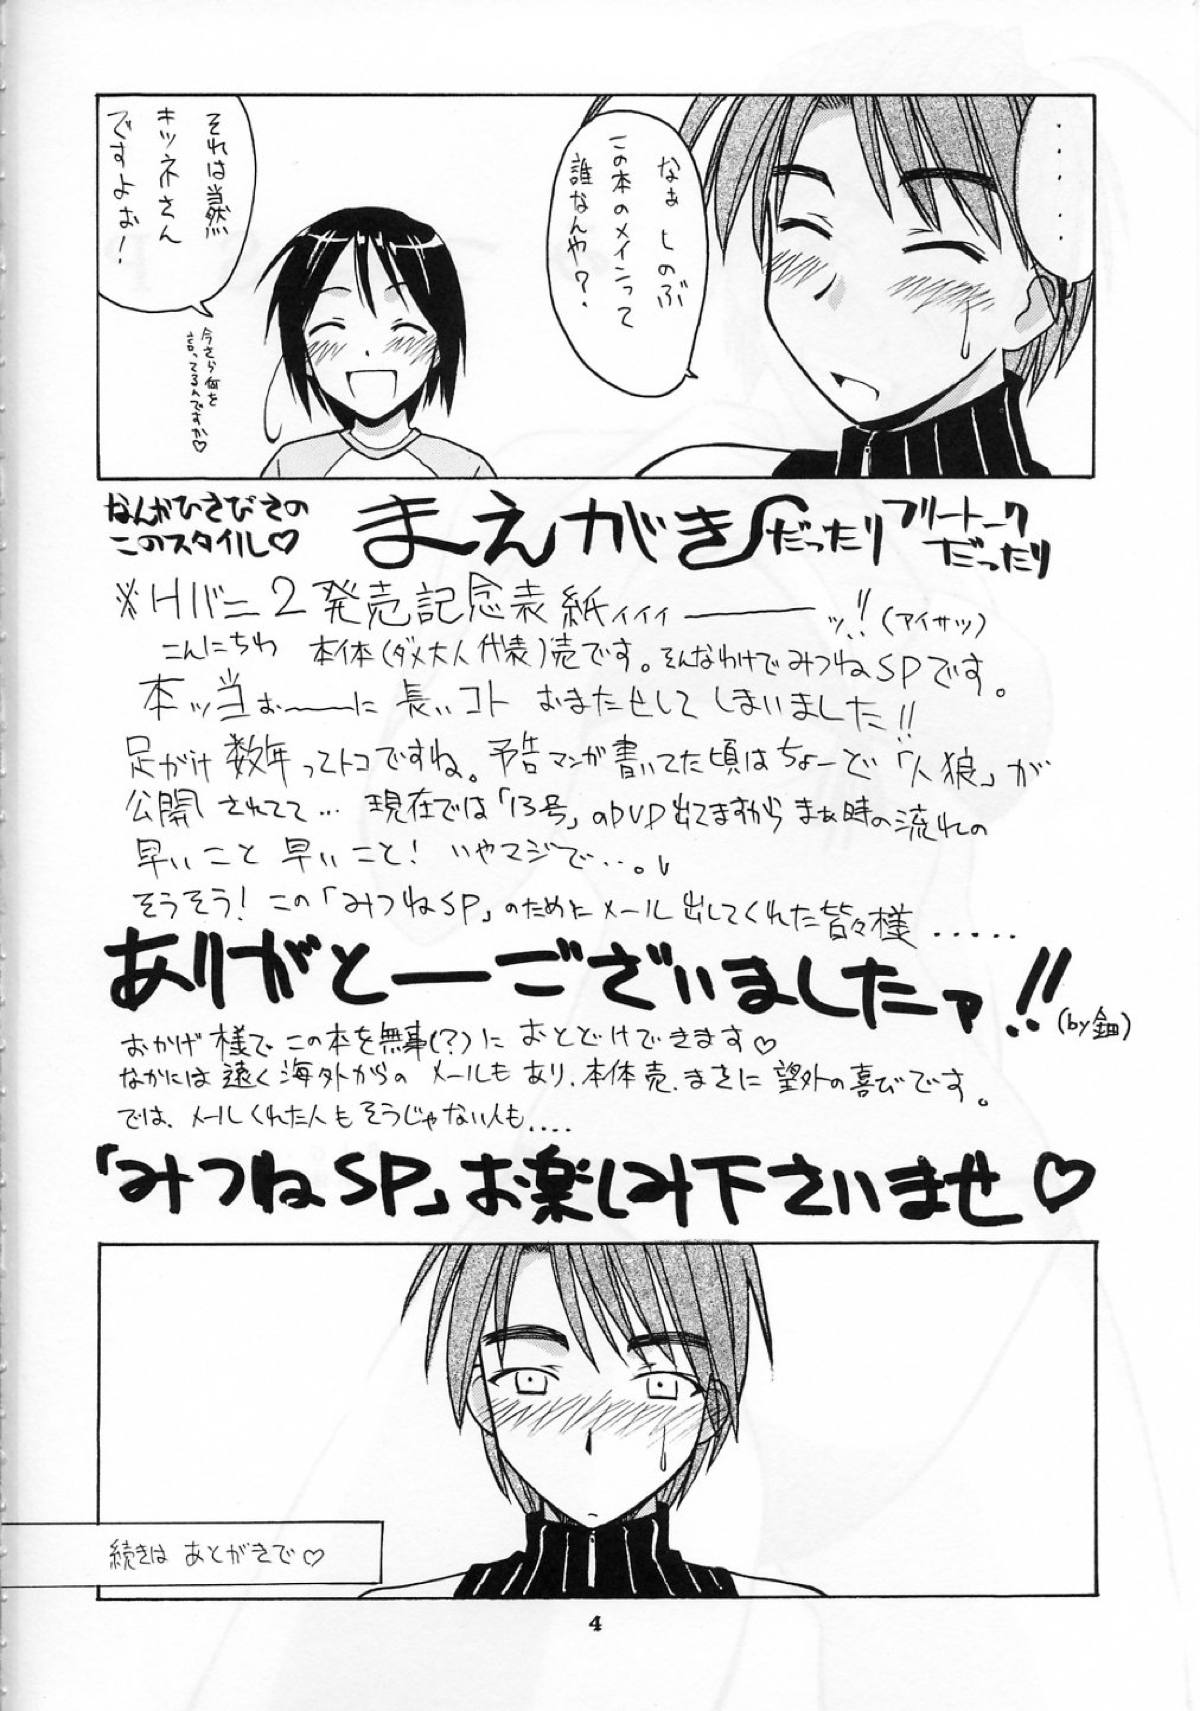 ・・・・・・
なぁ しのぶ
この本のメインって
誰なんや?
それは当然
キツネさん
ですよぉ!
今さら何を
言ってるんですか♡
なんかひさびさの
このスタイル♡
まえがき
だったり
フリートーク
だったり
※Hバニ2発売記念表紙ィィィーーーッ!!(アイサツ)
こんにちわ 本体(ダメ大人代表)売です。そんなわけでみつねSPです。
本ッ当ぉ〜〜に 長いコト おまたせして しまいました!!
足がけ数年ってトコですね。予告マンガ書いてた頃はちょーど「人狼」が
公開されてて... 現在では「13号」のDVD出てますから まぁ時の流れの
早いこと 早いこと! いやマジで...。
そうそう! この「みつねSP」のためにメール出してくれた皆々様.....
ありがとーございましたァ!!
(by 釦)
おかげ様で この本を無事(?)に おとどけできます♡
なかには遠く海外からの メールもあり、本体売、まさに 望外の喜びです。
では、メールくれた人もそうじゃない人も....
「みつねSP」お楽しみ下さいませ♡
続きは あとがきで♡
4